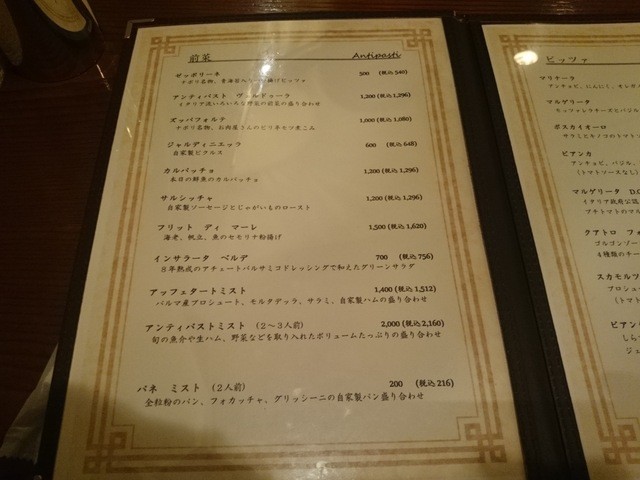 前菜 Antipasti
ゼッポリーネ 500 (税込540)
ナポリ名物、青海苔入り 揚げピッツァ
アンティパスト ヴェルドゥーラ 1,200 (税込1,296)
イタリア流いろいろな野菜の前菜の盛り合わせ
ズッパフォルテ 1,000 (税込1,080)
ナポリ名物、お肉屋さんのピリ辛モツ煮こみ
ジャルディニエッラ 600 (税込 648)
自家製ピクルス
カルパッチョ 1,200 (税込 1,296)
本日の鮮魚のカルパッチョ
サルシッチャ 1,200 (税込 1,296)
自家製ソーセージとじゃがいものロースト
フリット ディ マーレ 1,500 (税込 1,620)
海老、帆立、魚のセモリナ粉揚げ
インサラータ ベルデ 700 (税込 756)
8年熟成のアチェートバルサミコドレッシングで和えたグリーンサラダ
アッフェタートミスト 1,400 (税込 1,512)
パルマ産プロシュート、モルタデッラ、サラミ、自家製ハムの盛り合わせ
アンティパストミスト (2~3人前) 2,000 (税込 2,160)
旬の魚介や生ハム、野菜などを取り入れたボリュームたっぷりの盛り合わせ
パネ ミスト (2人前) 200 (税込 216)
全粒粉のパン、フォカッチャ、グリッシーニの自家製パン盛り合わせ
ピッツァ
マリナーラ
アンチョビ、にんにく、オレガノ
マルゲリータ
モッツァレラチーズとバジル
ボスカイオーロ
サラミとキノコのトマト
ビアンカ
アンチョビ、バジル、
(トマトソースなし)
マルゲリータ D.O
イタリア政府公認
プチトマトのマル
クアトロ フォ
ゴルゴンゾー
4種類のチー
スカモルツ
プロシュ
(トマ
ビアン
しら
ジェ